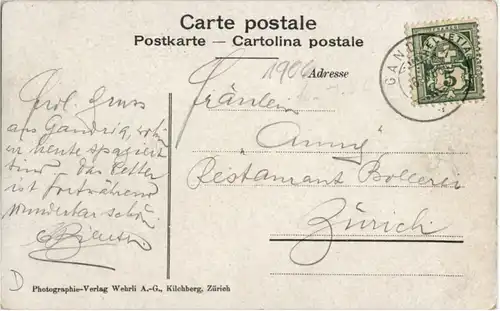 Carte postale
Postkarte — Cartolina postale
1906
Adresse
GAN
HELVETIA
5
Fräulein
"Anny"
Restaurant Bollerei
Zürich
Gruss
aus Gandria, wohin
heute spaziert
sind. Das Wetter
ist fortwährend
wunderbar schön.
D
Photographie-Verlag Wehrli A.-G., Kilchberg, Zürich